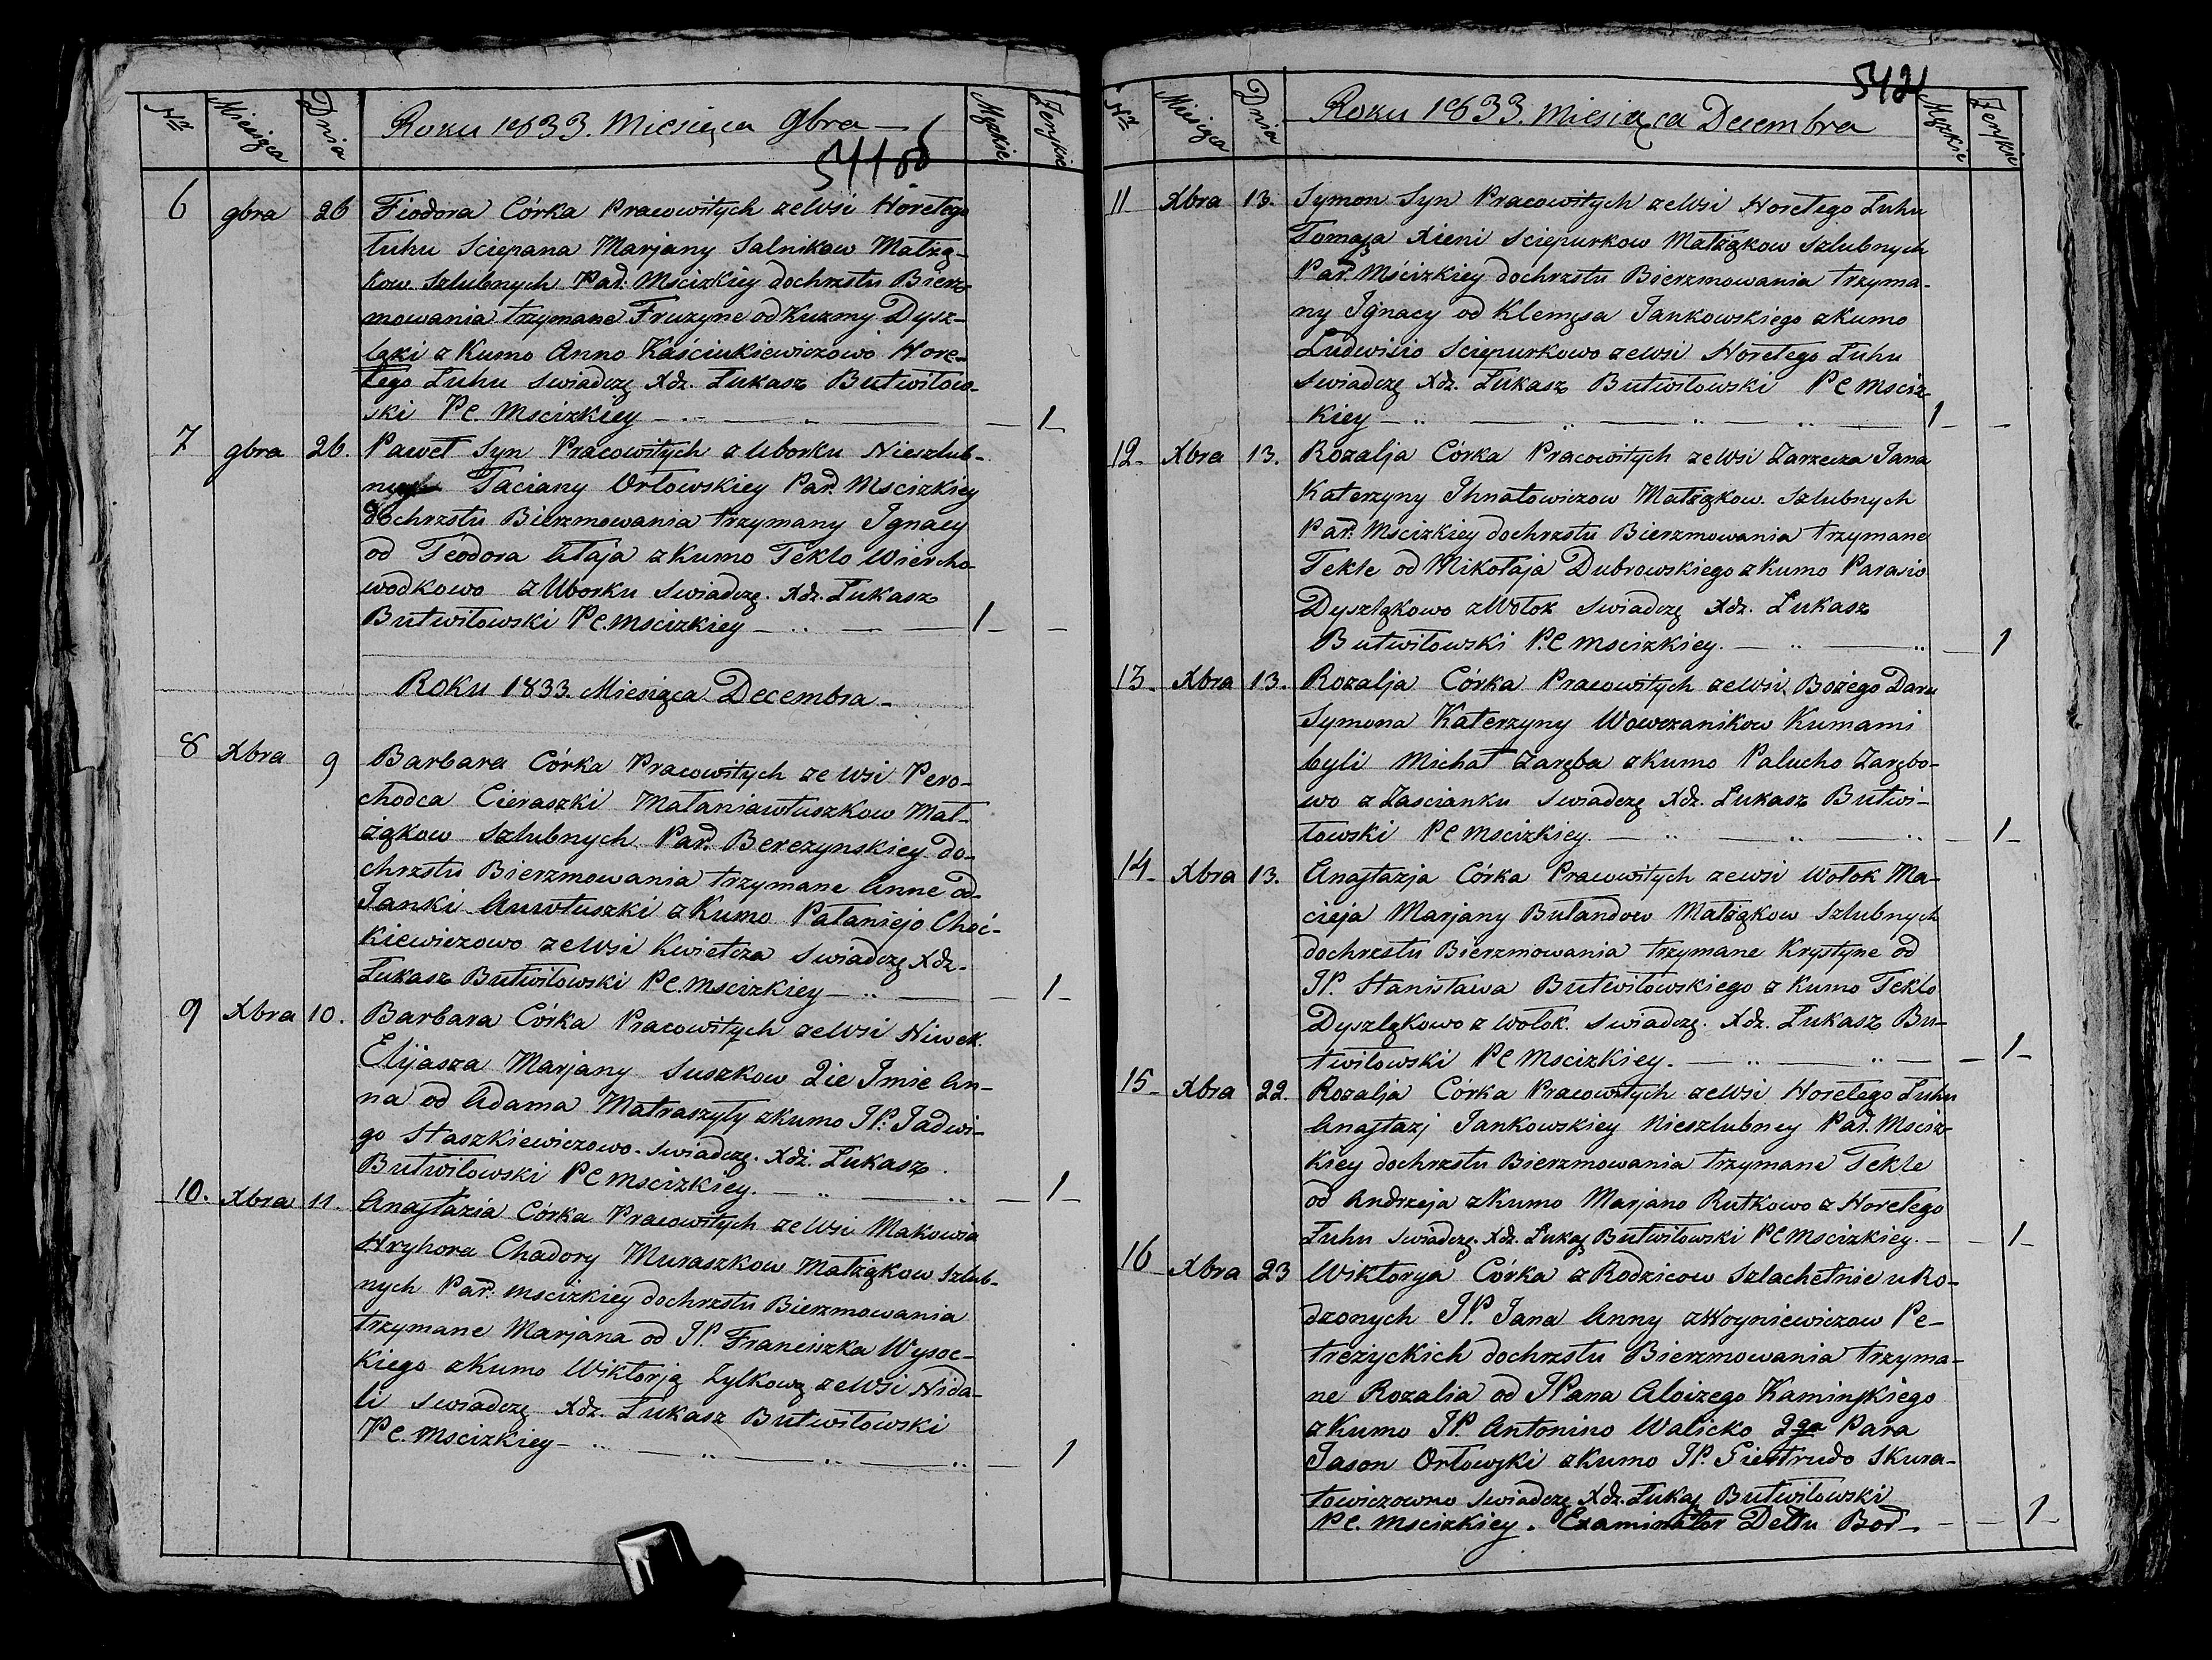 Nr Miesiąca Dnia Roku 1833. Miesięca 9bra Męzkie Żeńskie
541 об
6 9bra 26 Fiodora Córka Pracowitych ze Wsi Horełego
Łuhu Sciepana Marjany Salnikow Małzą-
kow. Szlubnych Par: Mscizkiey do chrzstu Bierz-
mowania trzymane Fruzyne od Kuzmy Dysz-
laki z Kumo Anno Kaściukiewiczowo Hore-
łego Łuhu Swiadczę Xdz. Łukasz Butwiłow-
ski P.C. Mscizkiey 1
7 9bra 26. Paweł Syn Pracowitych z Uborku Nieszlub-
ney Taciany Orłowskiey Par. Mscizkiey
do chrzstu Bierzmowania trzymany Ignacy
od Teodora Ałaja z Kumo Teklo Wiercho-
wodkowo z Uborku Swiadczę. Xdz. Łukasz
Butwiłowski P.C. Mscizkiey 1
Roku 1833. Miesiąca Decembra
8 Xbra 9 Barbara Córka Pracowitych ze Wsi Pero-
chodca Cieraszki Małaniawtuszkow Mał-
ząkow Szlubnych Par. Berezynskiey do-
chrzstu Bierzmowania trzymane Anne od
Janki Auwtuszki z Kumo Pałanieio Choć-
kiewiczowo ze Wsi Kwietcza Swiadczę Xdz.
Łukasz Butwiłowski P.C. Mscizkiey 1
9 Xbra 10. Barbara Córka Pracowitych ze Wsi Niwek
Elijasza Marjany Suszkow 2ie Imie An-
na od Adama Matraszyły z Kumo JP: Jadwi-
go Staszkiewiczowo. Swiadczę. Xdz. Łukasz
Butwiłowski P.C. Mscizkiey. 1
10. Xbra 11. Anastazia Córka Pracowitych ze Wsi Makowia
Hryhora Chadory Muraszkow Małżąkow Szlub-
nych Par. Mscizkiey do chrzstu Bierzmowania
trzymane Marjana od JP. Franciszka Wysoc-
kiego z Kumo Wiktorją Zylkową ze Wsi Nida-
li Swiadczę Xdz. Łukasz Butwiłowski
P.C. Mscizkiey 1
542
Nr Miesiąca Dnia Roku 1833. Miesiąca Decembra Męzkie Żeńskie
11 Xbra 13. Symon Syn Pracowitych ze Wsi Horełego Łuhu
Tomasza Xieni Sciepurkow Małżąkow Szlubnych
Par. Mścizkiey do chrzstu Bierzmowania trzyma-
ny Ignacy od Klemęsa Jankowskiego z Kumo
Ludwisio Sciepurkowo ze Wsi Horełego Łuhu
Swiadczę Xdz. Łukasz Butwiłowski P.C. Msciz-
kiey 1
12 Xbra 13. Rozalja Córka Pracowitych ze Wsi Zarzecza Jana
Katerzyny Ihnatowiczow Małżąkow. Szlubnych
Par. Mscizkiey do chrzstu Bierzmowania trzymane
Tekle od Mikołaja Dubrowskiego z Kumo Parasio
Dyszląkowo z Wołok Swiadczę Xdz. Łukasz
Butwiłowski P.C. Mscizkiey. 1
13. Xbra 13. Rozalja Córka Pracowitych ze Wsi Bożego Daru
Symona Katerzyny Wowczanikow Kumami
byli Michał Zaręba z Kumo Palucho Zarębo-
wo z Zascianku Swiadczę Xdz. Łukasz Butwi-
łowski P.C. Mscizkiey. 1
14 Xbra 13. Anastazja Córka Pracowitych ze Wsi Wołok Ma-
cieja Marjany Bułandow Małżąkow Szlubnych
do chrzstu Bierzmowania trzymane Krystyne od
JP. Stanisława Butwiłowskiego z Kumo Teklo
Dyszląkowo z Wołok. Swiadczę. Xdz. Łukasz Bu-
twiłowski P.C. Mscizkiey. 1
15 Xbra 22. Rozalja Córka Pracowitych ze Wsi Horełego Łuhu
Anastazj Jankowskiey Nieszlubney Par. Msciz-
kiey do chrzstu Bierzmowania trzymane Tekle
od Andrzeja z Kumo Marjano Rutkowo z Horełego
Łuhu Swiadczę. Xdz. Łukasz Butwiłowski P.C. Mscizkiey. 1
16 Xbra 23 Wiktorya Córka z Rodzicow Szlachetnie uRo-
dzonych JP. Jana Anny z Woyniewiczow Pe-
treżyckich do chrzstu Bierzmowania trzyma-
ne Rozalia od JPana Aloizego Kaminskiego
z Kumo JP. Antonino Walicko 2ga Para
Jason Orłowski z Kumo JP. Giertrudo Skura-
towiczowno Swiadczę Xdz. Łukasz Butwiłowski
P.C. Mscizkiey. Examinator Dettu Bor 1